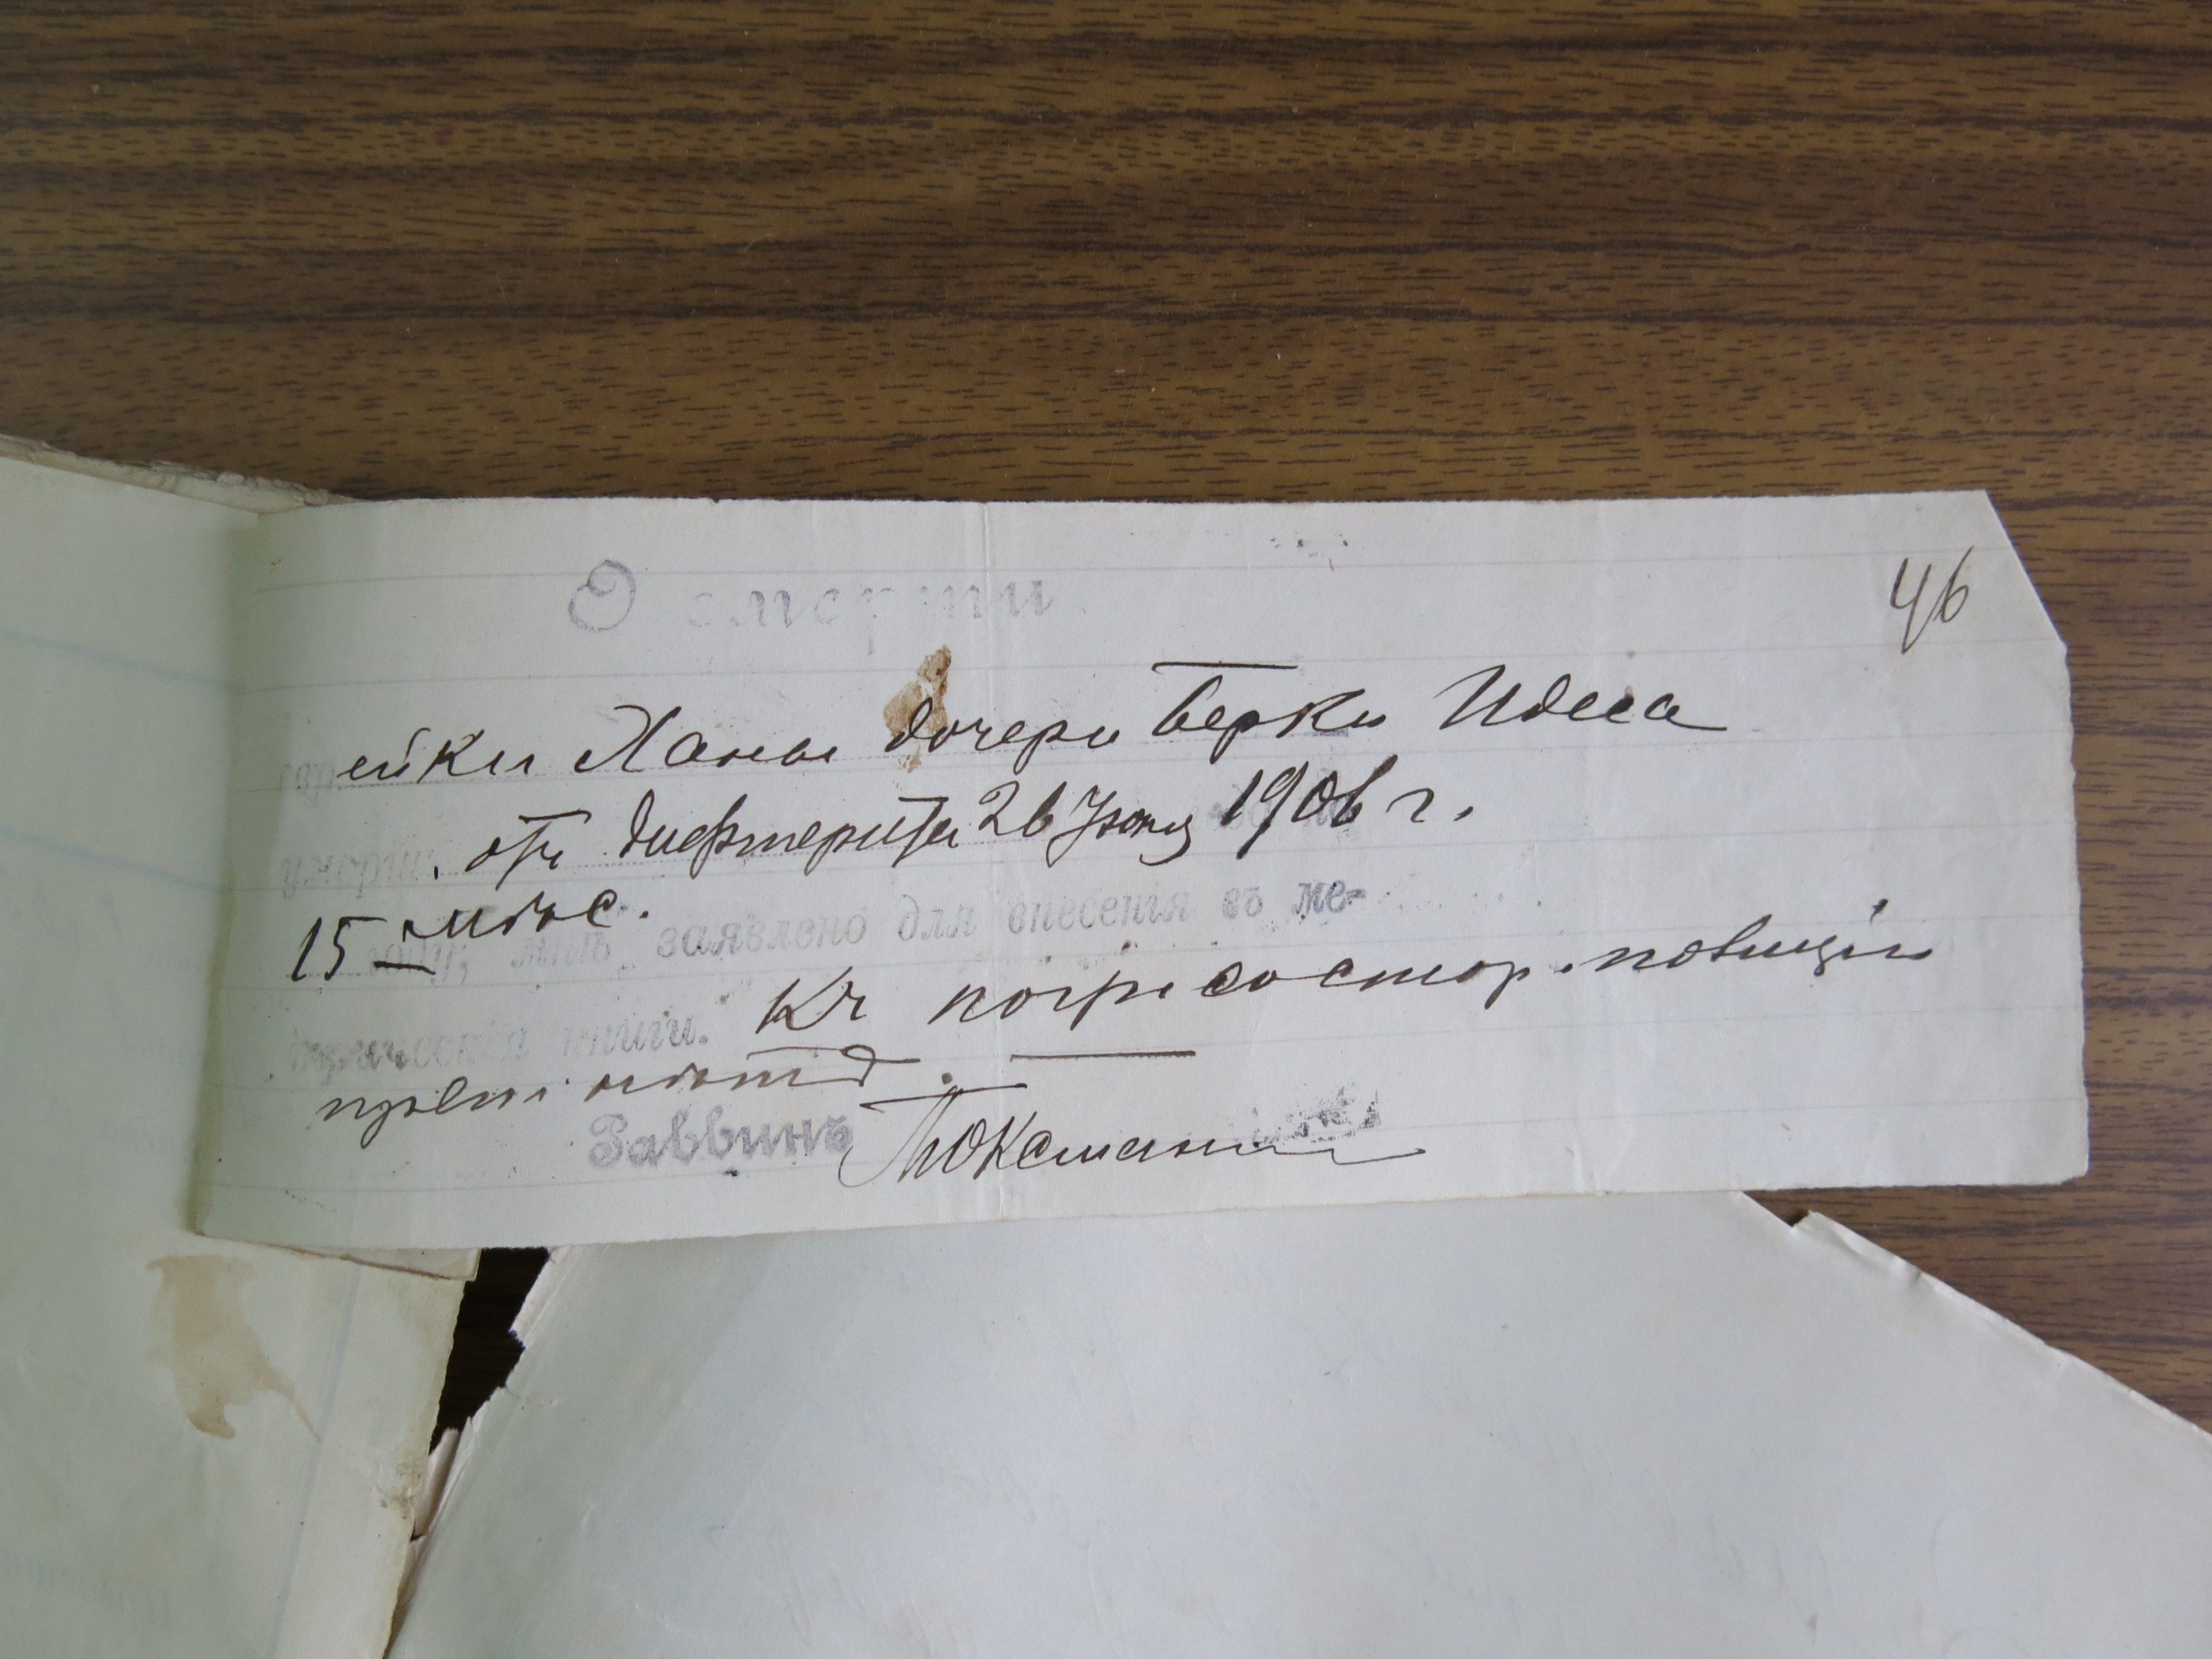 46
О смерти
ейки Ханы дочери Берки Идеса
умерш. отъ дифтерита 26 Іюня 1906 г.
15 мѣс. заявлено для внесенія въ ме-
трическія книги. Къ погр. со стор. полиціи
препі нѣтъ.
Раввинъ Токсманъ